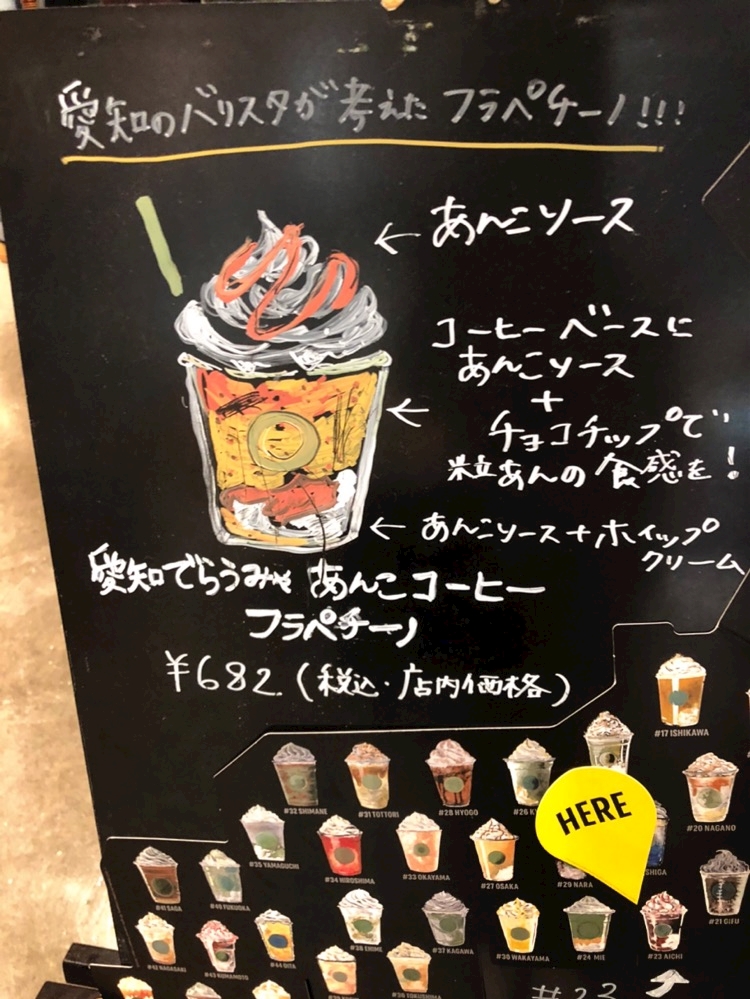 愛知のバリスタが考えた フラペチーノ!!!
← あんこソース
コーヒーベースに
あんこソース
+
チョコチップで
粒あんの食感を!
← あんこソース+ホイップ
クリーム
愛知でらうみゃ あんこコーヒー
フラペチーノ
¥682.(税込・店内価格)
#17 ISHIKAWA
#32 SHIMANE
#31 TOTTORI
#28 HYOGO
#26 K
HERE
#20 NAGANO
#35 YAMAGUCHI
#34 HIROSHIMA
#33 OKAYAMA
#27 OSAKA
#29 NARA
SHIGA
#41 SAGA
#40 FUKUOKA
#21 GIFU
#42 NAGASAKI
#43 KUMAMOTO
#44 OITA
#38 EHIME
#37 KAGAWA
#30 WAKAYAMA
#24 MIE
#23 AICHI
TOKUSHIMA
#23